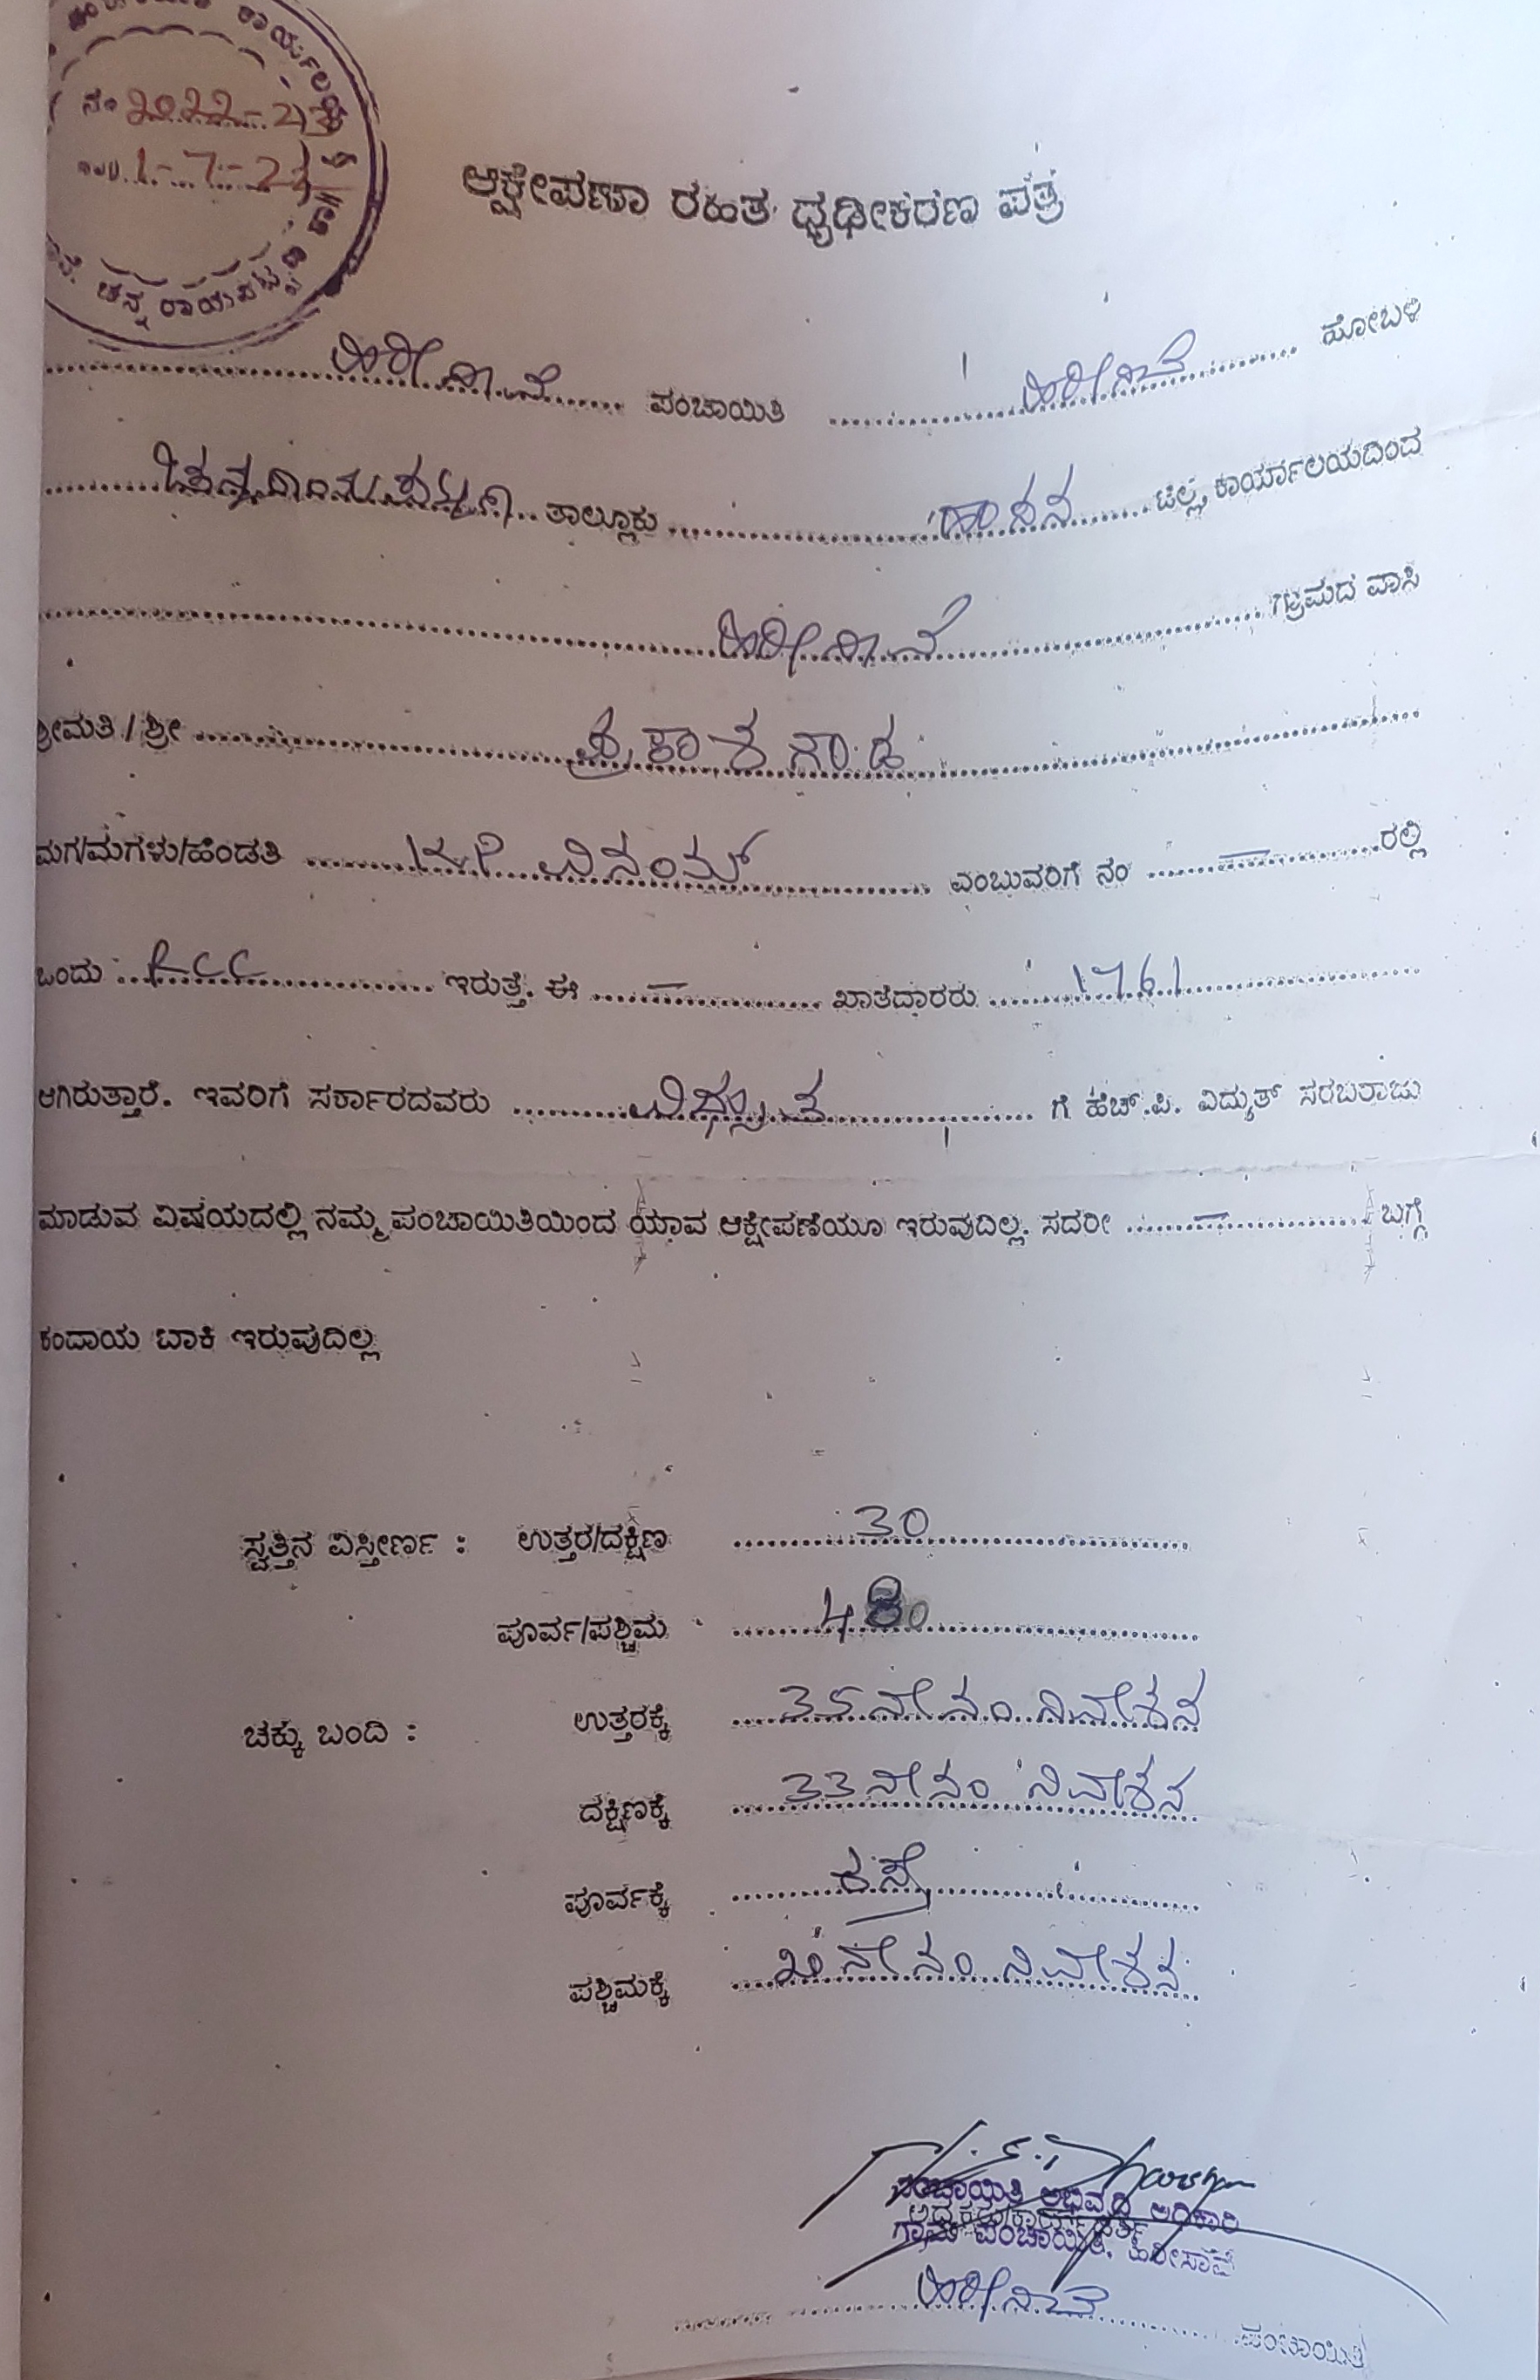 ಕಾರ್ಯಾಲಯ
ನಂ 2022-23
1-7-23
ಚನ್ನರಾಯಪಟ್ಟಣ
ಆಕ್ಷೇಪಣಾ ರಹಿತ ಧೃಢೀಕರಣ ಪತ್ರ
ಹಿರೀಸಾವೆ ಪಂಚಾಯಿತಿ ಹಿರೀಸಾವೆ ಹೋಬಳಿ
ಚನ್ನರಾಯಪಟ್ಟಣ ತಾಲ್ಲೂಕು ಹಾಸನ ಜಿಲ್ಲೆ, ಕಾರ್ಯಾಲಯದಿಂದ
ಹಿರೀಸಾವೆ ಗ್ರಾಮದ ವಾಸಿ
ಶ್ರೀಮತಿ / ಶ್ರೀ
ಮಗ/ಮಗಳು/ಹೆಂಡತಿ ಎಂಬುವರಿಗೆ ನಂ - ರಲ್ಲಿ
ಒಂದು RCC ಇರುತ್ತೆ. ಈ - ಖಾತೆದಾರರು 1761
ಆಗಿರುತ್ತಾರೆ. ಇವರಿಗೆ ಸರ್ಕಾರದವರು ಗೆ ಹೆಚ್.ಪಿ. ವಿದ್ಯುತ್ ಸರಬರಾಜು
ಮಾಡುವ ವಿಷಯದಲ್ಲಿ ನಮ್ಮ ಪಂಚಾಯಿತಿಯಿಂದ ಯಾವ ಆಕ್ಷೇಪಣೆಯೂ ಇರುವುದಿಲ್ಲ. ಸದರೀ - ಬಗ್ಗೆ
ಕಂದಾಯ ಬಾಕಿ ಇರುವುದಿಲ್ಲ
ಸ್ವತ್ತಿನ ವಿಸ್ತೀರ್ಣ : ಉತ್ತರ/ದಕ್ಷಿಣ 30
ಪೂರ್ವ/ಪಶ್ಚಿಮ
ಚಕ್ಕು ಬಂದಿ : ಉತ್ತರಕ್ಕೆ 35 ನೇ ನಂ ನಿವೇಶನ
ದಕ್ಷಿಣಕ್ಕೆ 33 ನೇ ನಂ ನಿವೇಶನ
ಪೂರ್ವಕ್ಕೆ ರಸ್ತೆ
ಪಶ್ಚಿಮಕ್ಕೆ ನೇ ನಂ ನಿವೇಶನ
ಪಂಚಾಯಿತಿ ಅಭಿವೃದ್ಧಿ ಅಧಿಕಾರಿ
ಗ್ರಾಮ ಪಂಚಾಯಿತಿ, ಹಿರೀಸಾವೆ
ಹಿರೀಸಾವೆ ಪಂಚಾಯಿತಿ